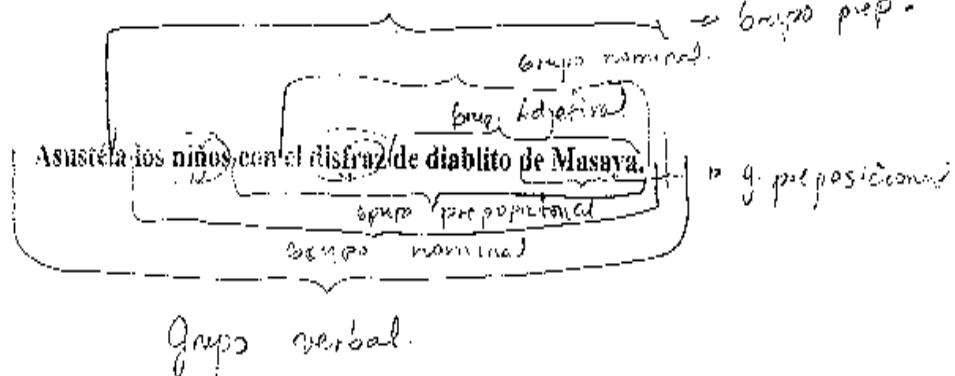 Grupo prep.
Grupo nominal.
Grup. Adjetival
Asusté a los niños con el disfraz de diablito de Masaya.
g. preposicional
Grupo preposicional
Grupo nominal
Grupo verbal.